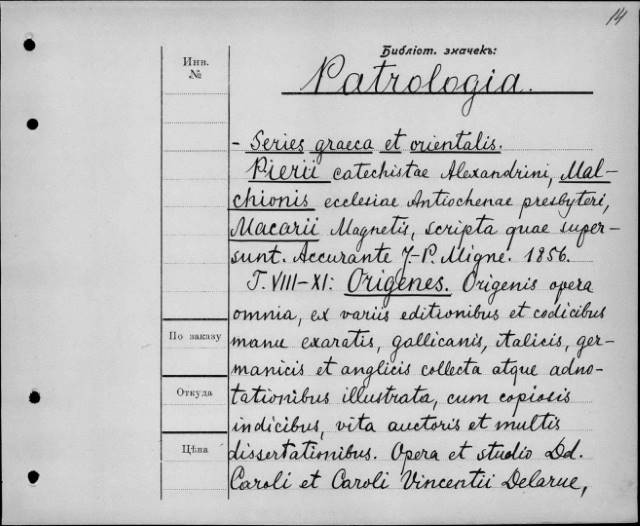 14
Библіот. значекъ:
Инв.
№
Patrologia.
- Series graeca et orientalis.
Pierii catechistae Alexandrini, Mal-
chionis ecclesiae Antiochenae presbyteri,
Macarii Magnetis, scripta quae super-
sunt. Accurante J.-P. Migne. 1856.
T. VIII-XI: Origenes. Origenis opera
omnia, ex variis editionibus et codicibus
По заказу
manu exaratis, gallicanis, italicis, ger-
manicis et anglicis collecta atque adno-
Откуда
tationibus illustrata, cum copiosis
indicibus, vita auctoris et multis
Цѣна
dissertationibus. Opera et studio Dd.
Caroli et Caroli Vincentii Delarue,